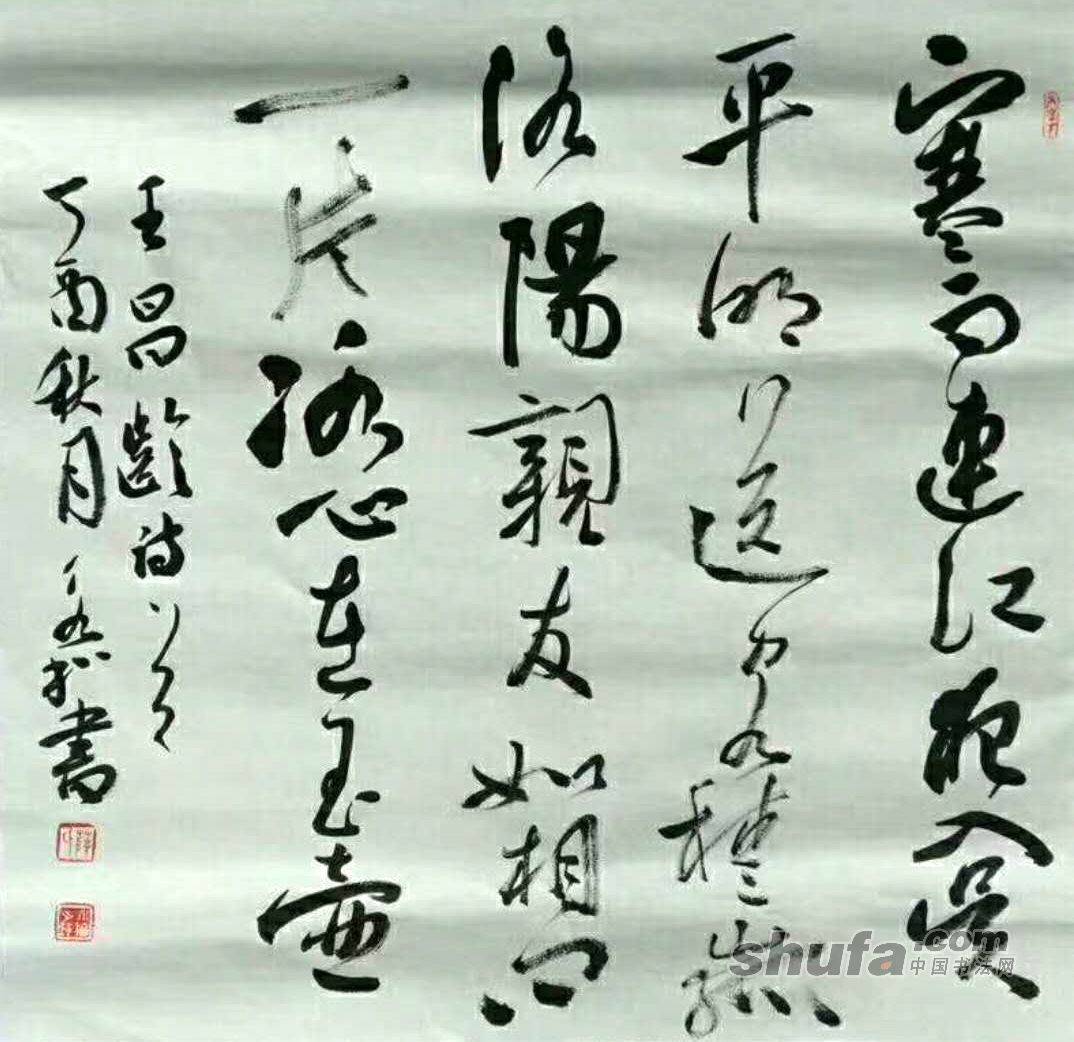 寒雨連江夜入吳
平明送客楚山孤
洛陽親友如相問
一片冰心在玉壺
王昌齡詩
丁酉秋月 書
shufa.com
中国书法网